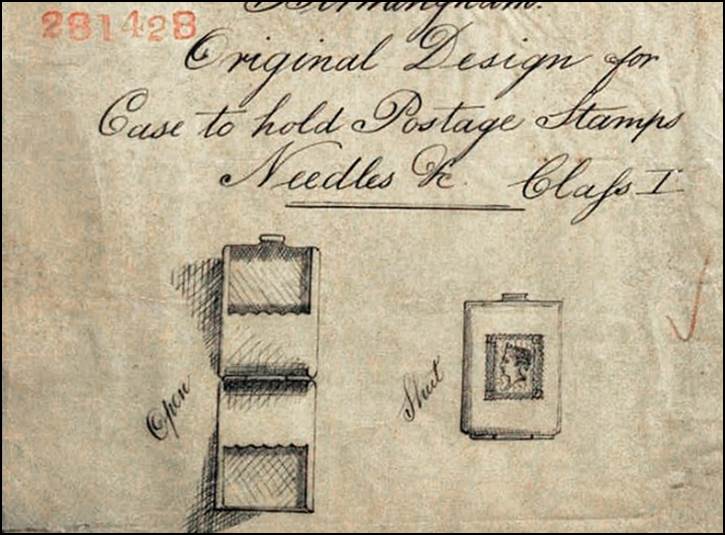 281428
Birmingham.
Original Design for
Case to hold Postage Stamps
Needles &c. Claſs I
Open
Shut